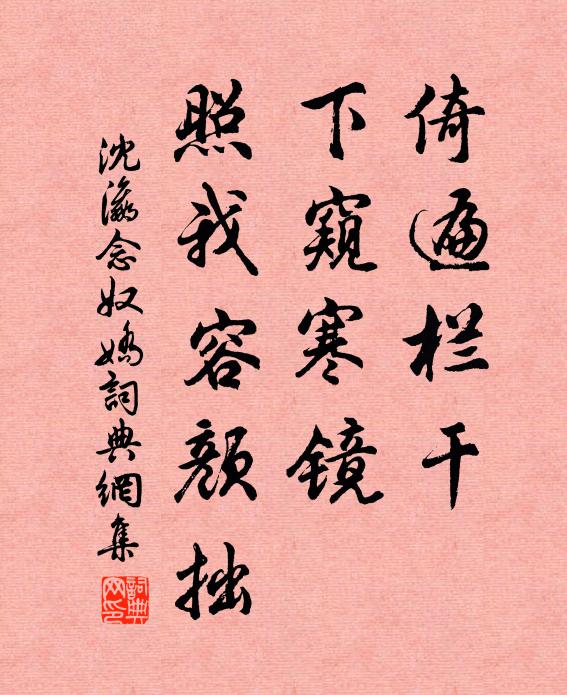 倚遍栏干
下窥寒镜
照我容颜拙
沈瀛念奴娇詞典網集
詞典网印